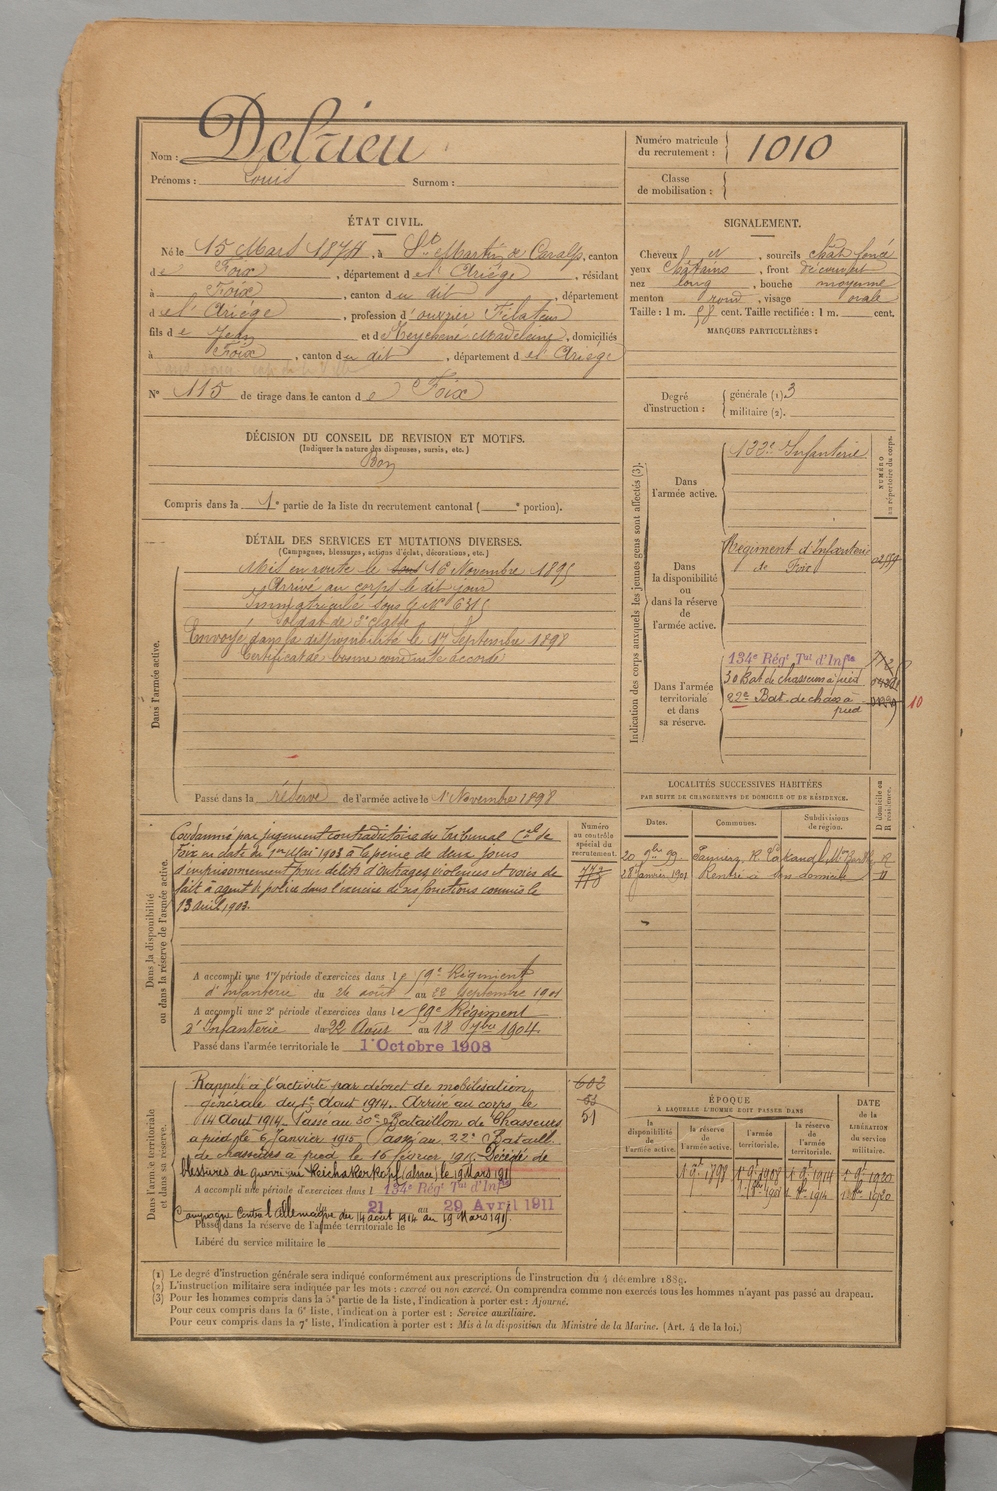 Nom : Delrieu
Prénoms : Louis Surnom :
Numéro matricule
du recrutement : 1010
Classe
de mobilisation :
ÉTAT CIVIL.
Né le 15 Mars 1874, à St Martin de Caralp, canton
de Foix, département de l'Ariège, résidant
à Foix, canton du dit, département
de l'Ariège, profession d'ouvrier Filateur
fils de Jean et de Madeleine, domiciliés
à Foix, canton du dit, département de l'Ariège
N° 115 de tirage dans le canton de Foix
SIGNALEMENT.
Cheveux et, sourcils chât. foncé
yeux Châtains, front découvert
nez long, bouche moyenne
menton rond, visage ovale
Taille : 1 m. 58 cent. Taille rectifiée : 1 m. cent.
MARQUES PARTICULIÈRES :
Degré
d'instruction :
générale (1) 3
militaire (2).
DÉCISION DU CONSEIL DE REVISION ET MOTIFS.
(Indiquer la nature des dispenses, sursis, etc.)
Bon
Compris dans la 1e partie de la liste du recrutement cantonal ( e portion).
DÉTAIL DES SERVICES ET MUTATIONS DIVERSES.
(Campagnes, blessures, actions d'éclat, décorations, etc.)
Dans l'armée active.
Mis en route le 16 Novembre 1895
Arrivé au corps le dit jour
Immatriculé sous le No
Soldat de 2e classe
Envoyé dans la disponibilité le 17 Septembre 1898
Certificat de bonne conduite accordé
Passé dans la réserve de l'armée active le 1 Novembre 1898
Indication des corps auxquels les jeunes gens sont affectés (3).
NUMÉRO
au répertoire du corps.
Dans
l'armée active.
122e Infanterie
Dans
la disponibilité
ou
dans la réserve
de
l'armée active.
Régiment d'Infanterie
de Foix
Dans l'armée
territoriale
et dans
sa réserve.
134e Régt Tal d'Infie
30 Bat de chasseurs à pied
22e Bat. de chass à
pied
10
LOCALITÉS SUCCESSIVES HABITÉES
PAR SUITE DE CHANGEMENTS DE DOMICILE OU DE RÉSIDENCE.
D domicile ou
R résidence.
Dates. Communes. Subdivisions
de région.
20 9bre 99 Pamiers, R. R
28 Janvier 1901 Rentré à son domicile
Dans la disponibilité
ou dans la réserve de l'armée active.
Numéro
au contrôle
spécial du
recrutement.
Condamné par jugement contradictoire du Tribunal Cel de
Foix en date du 1er Mai 1903 à la peine de deux jours
d'emprisonnement pour délits d'outrages violences et voies de
fait à agent de police dans l'exercice de ses fonctions commis le
13 avril 1903.
A accompli une 1re période d'exercices dans le 59e Régiment
d'Infanterie du 26 août au 22 Septembre 1901
A accompli une 2e période d'exercices dans le 59e Régiment
d'Infanterie du 22 Août au 18 7bre 1904
Passé dans l'armée territoriale le 1er Octobre 1908
Dans l'armée territoriale
et dans sa réserve.
Rappelé à l'activité par décret de mobilisation
générale du 1er Août 1914. Arrivé au corps le
14 Août 1914. Passé au 30e Bataillon de Chasseurs
à pied le 6 Janvier 1915. Passé au 22e Bataill.
de chasseurs à pied le 16 février 1915. Décédé de
blessures de guerre au Reichakerkopf (alsace) le 19 Mars 1915
A accompli une période d'exercices dans l 134e Régt Tal d'Infie
du 21 au 29 Avril 1911
Campagne contre l'Allemagne du 14 août 1914 au 19 Mars 1915
Passé dans la réserve de l'armée territoriale le
Libéré du service militaire le
51
ÉPOQUE
À LAQUELLE L'HOMME DOIT PASSER DANS
DATE
de la
LIBÉRATION
du service
militaire.
la
disponibilité
de
l'armée active.
la réserve
de
l'armée active.
l'armée
territoriale.
la réserve
de
l'armée
territoriale.
(1) Le degré d'instruction générale sera indiqué conformément aux prescriptions de l'instruction du 4 décembre 1889.
(2) L'instruction militaire sera indiquée par les mots : exercé ou non exercé. On comprendra comme non exercés tous les hommes n'ayant pas passé au drapeau.
(3) Pour les hommes compris dans la 5e partie de la liste, l'indication à porter est : Ajourné.
Pour ceux compris dans la 6e liste, l'indication à porter est : Service auxiliaire.
Pour ceux compris dans la 7e liste, l'indication à porter est : Mis à la disposition du Ministre de la Marine. (Art. 4 de la loi.)